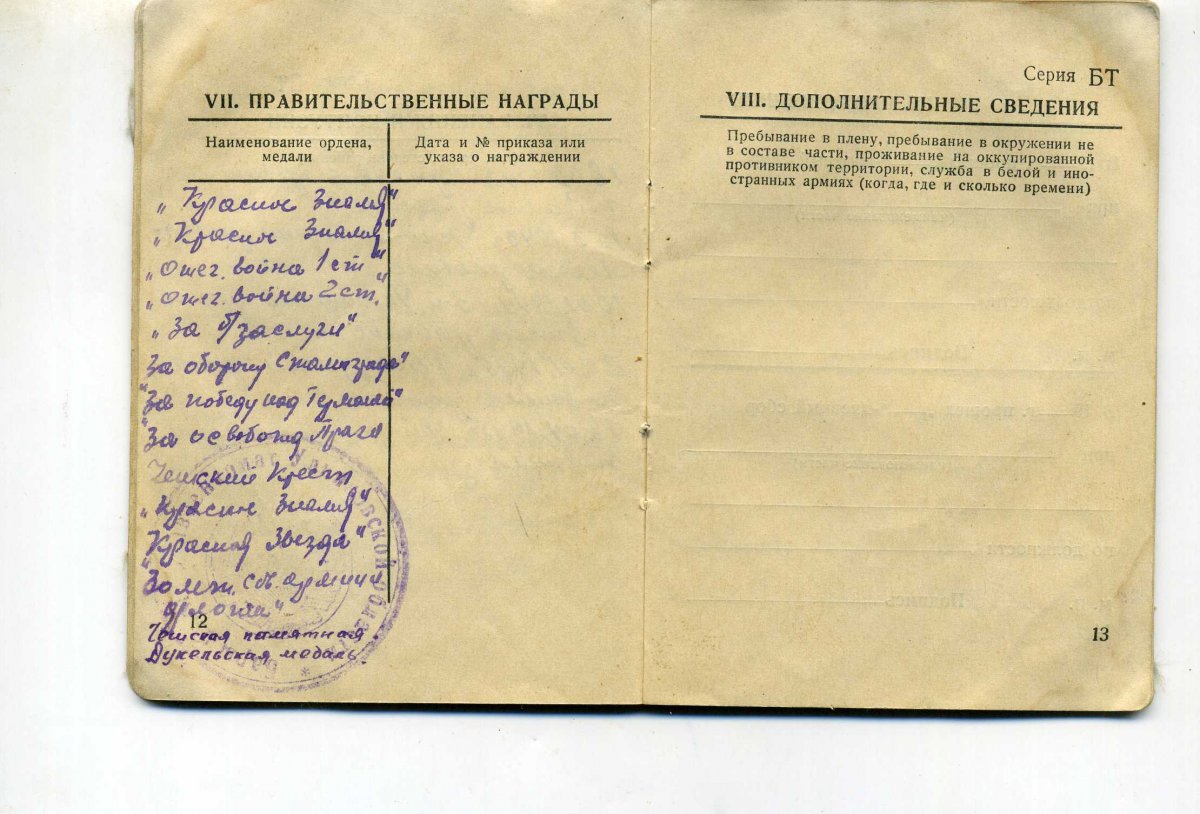 VII. ПРАВИТЕЛЬСТВЕННЫЕ НАГРАДЫ
Наименование ордена,
медали
Дата и № приказа или
указа о награждении
„Красное Знамя"
„Красное Знамя"
„Отеч. война 1 ст"
„Отеч. война 2 ст."
„За б/заслуги"
За оборону Сталинграда"
"За победу над Германией"
"За освобожд Праги
Чешский Крест
„Красное Знамя"
"Красная Звезда"
сов. армии
и флота"
12
Чешская памятная
Дукельская медаль
Серия БТ
VIII. ДОПОЛНИТЕЛЬНЫЕ СВЕДЕНИЯ
Пребывание в плену, пребывание в окружении не
в составе части, проживание на оккупированной
противником территории, служба в белой и ино-
странных армиях (когда, где и сколько времени)
13